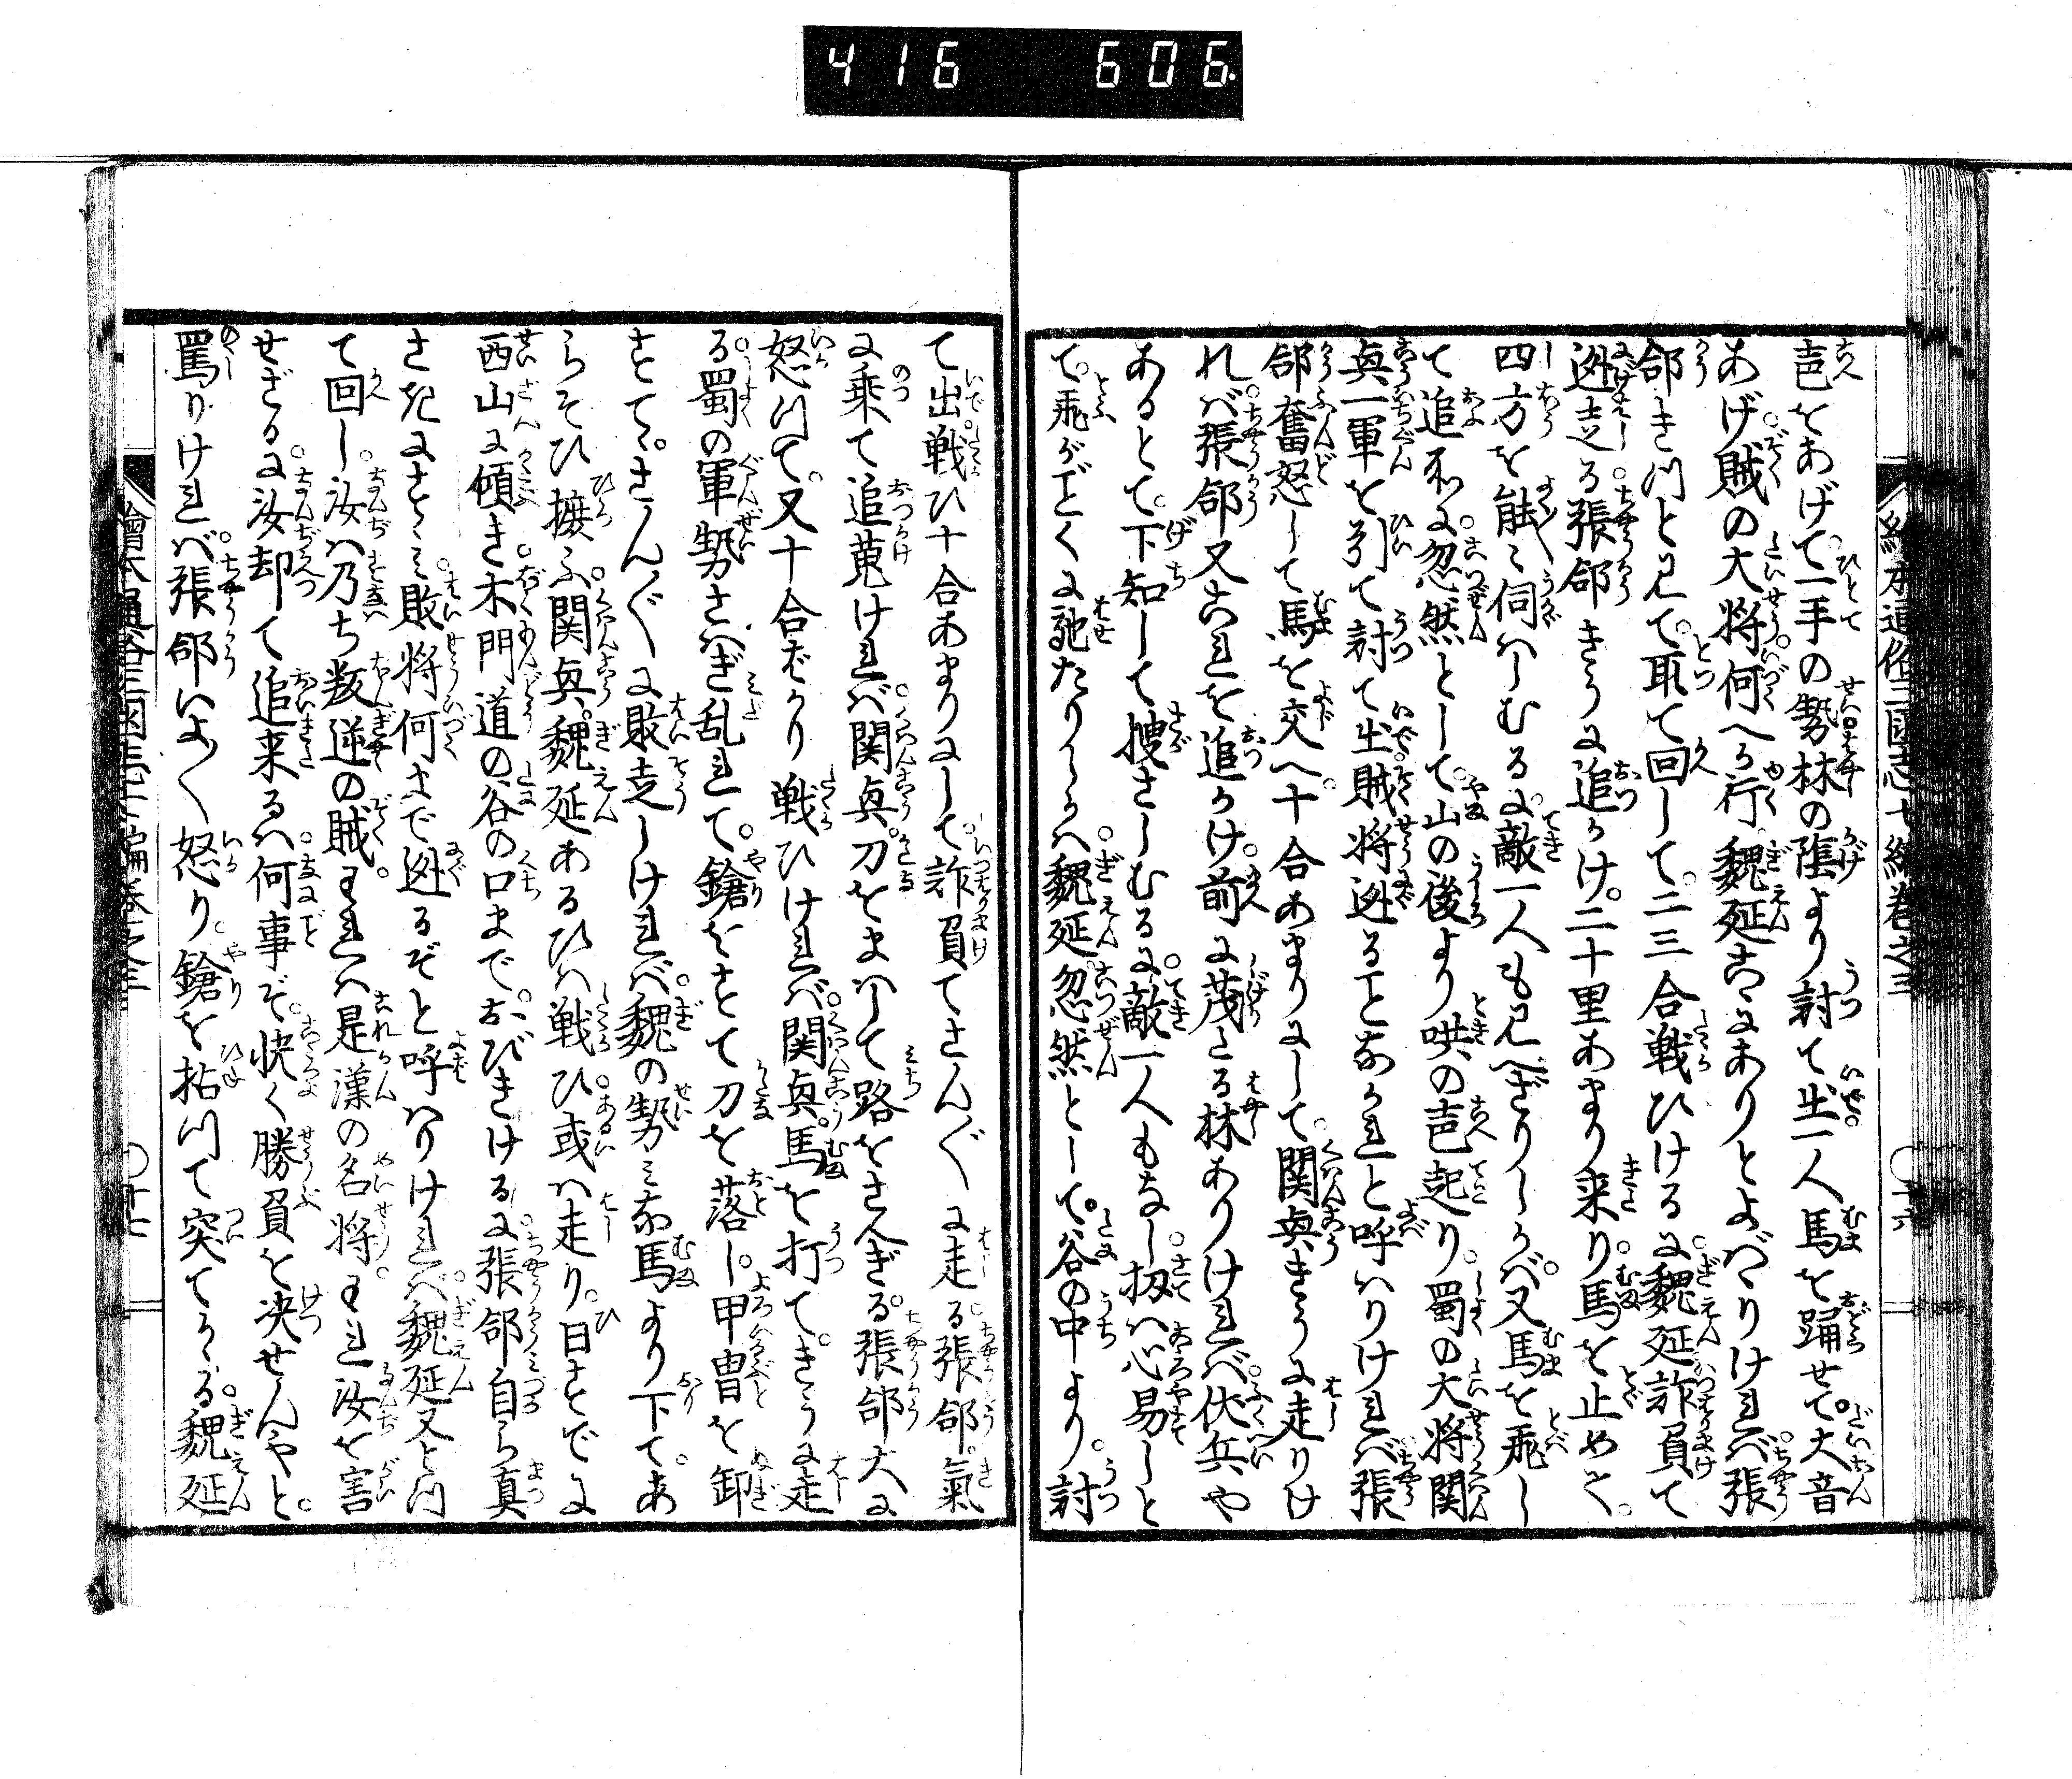 416 606.
絵本通俗三国志七編巻之三
〇十六
声をあげて一手の勢林の蔭より討て出一人馬を踊せて。大音
あげ賊の大将何へか行魏延こゝにありとよばゝりければ張
郃きつと見て。取て回して。二三合戦ひけるに魏延詐負て
迯走る張郃きうに追かけ。二十里あまり来り。馬を止めて。
四方を能〻伺はしむるに敵一人も見へざりしかば。又馬を飛し
て追所に忽然として。山の後より哄の声起り。蜀の大将関
興一軍を引て討て出賊将迯ることなかれと呼はりければ張
郃奮怒して馬を交へ十合あまりにして。関興きうに走りけ
れば張郃又これを追かけ。前に茂たる林ありければ伏兵や
あるとて。下知して捜さしむるに。敵一人もなし扨は心易しと
て。飛がごとくに馳たりしかば魏延忽然として。谷の中より。討
て出戦ひ十合あまりにして。詐負てさん〴〵に走る。張郃。氣
に乗て追蒐ければ。関興。刀をまはして路をさへぎる。張郃大に
怒つて。又十合ばかり戦ひければ。関興。馬を打て。きうに走
る。蜀の軍勢さはぎ乱れて。鎗をすて刀を落し。甲冑を卸
すて。さん〴〵に敗走しければ。魏の勢みな馬より下て。あ
らそひ攃ふ。関興。魏延あるひは戦ひ。或は走り。日すでに
西山に傾き。木門道の谷の口まで。おびきけるに。張郃自ら真
さきにすゝみ敗将何まで迯るぞと呼はりければ。魏延又とつ
て回し。汝は乃ち叛逆の賊。われは是漢の名将。われ汝を害
せざるに。汝却て追来るは。何事ぞ。快く勝負を决せんやと。
罵りければ。張郃いよ〳〵怒り。鎗を拈つて突てかゝる。魏延
繪本通俗三国志七編巻之三
〇十七